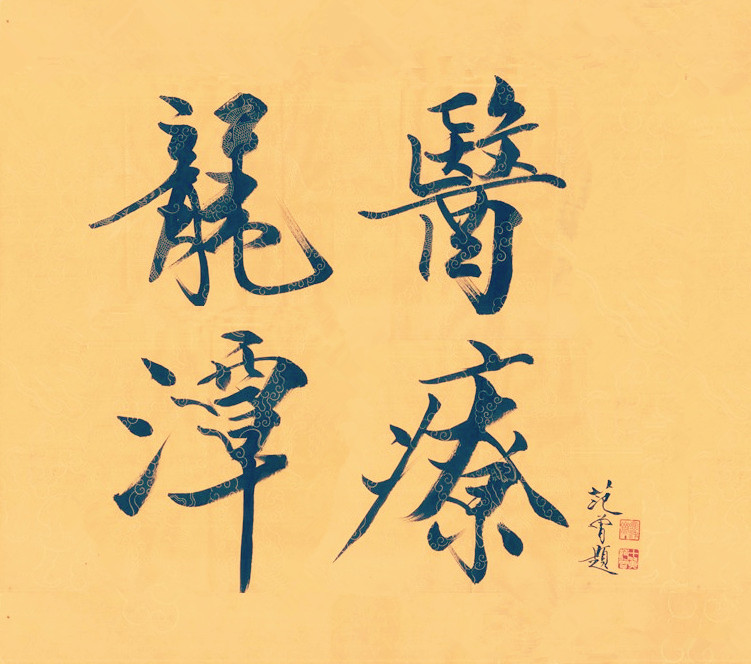 醫療
龍潭
范曾題